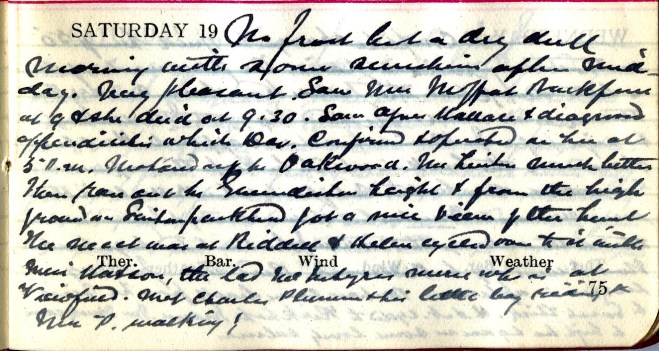 SATURDAY 19 No frost but a dry dull
morning with some sunshine after mid-
day. Very pleasant. Saw Mrs Moffat
at 9 & she died at 9.30. Saw Agnes Wallace & diagnosed
appendicitis which Dav. confirmed & operated on her at
5 p.m. Motored up to Oakwood. Mrs much better
then ran out to height & from the high
ground on got a nice view of the hunt
The meet was at Riddell & Helen cycled over to it with
Ther. Bar. Wind Weather
Miss Watson, the lad who is at
Viewfield. Met Charles Plummer & his little boy &
75
Mrs P. walking!